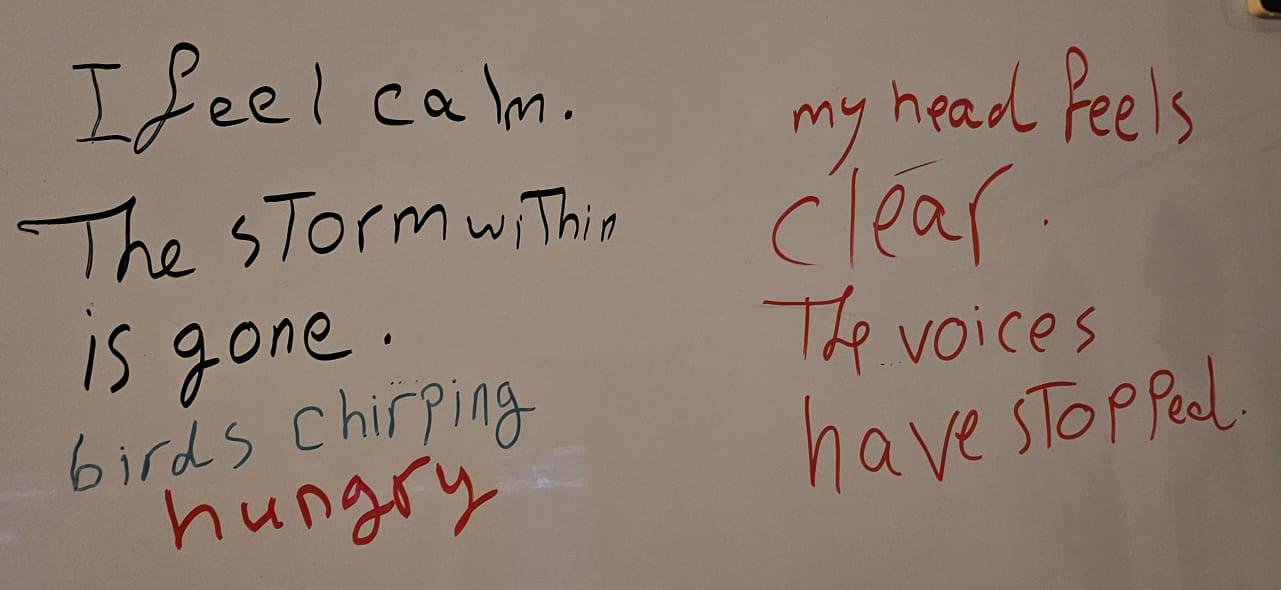 I feel calm.
The sTorm wiThin
is gone.
birds chirping
hungry
my head feels
clear.
The voices
have sTopped.